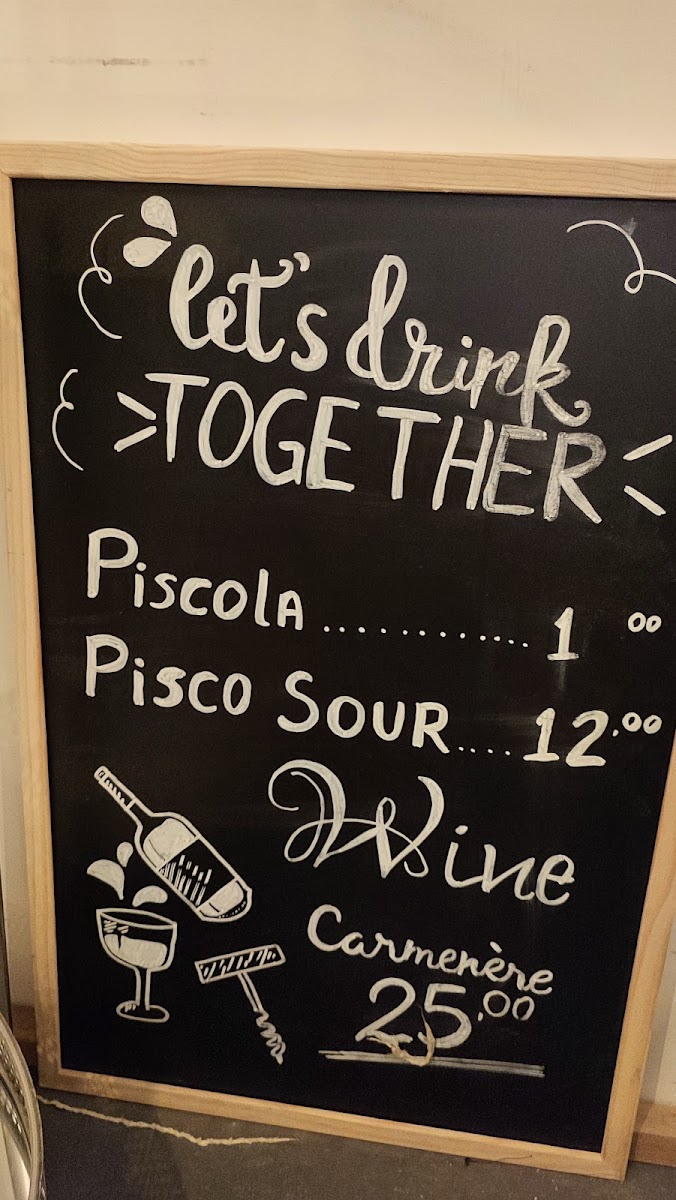 let's drink
TOGETHER
Piscola ............. 1 00
Pisco Sour..... 12.00
Wine
Carmenère
25.00